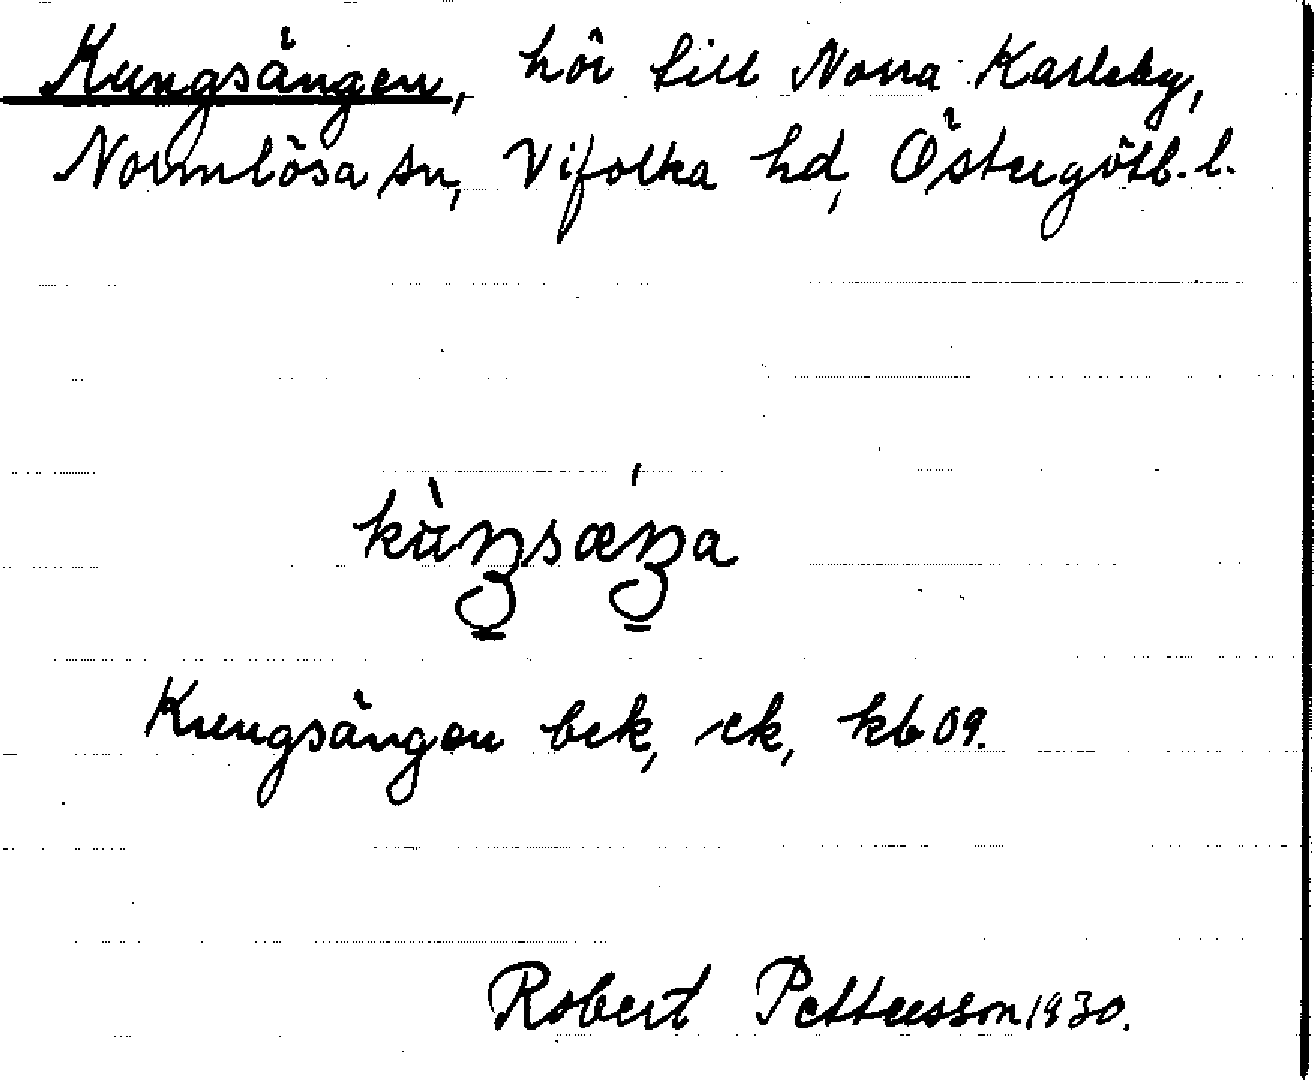 Kungsängen, hör till Norra Karleby,
Normlösa sn, Vifolka hd, Östergötl. l.
kùŋsæ´ŋa
Kungsängen bek, ek, kb 09.
Robert Pettersson 1930.